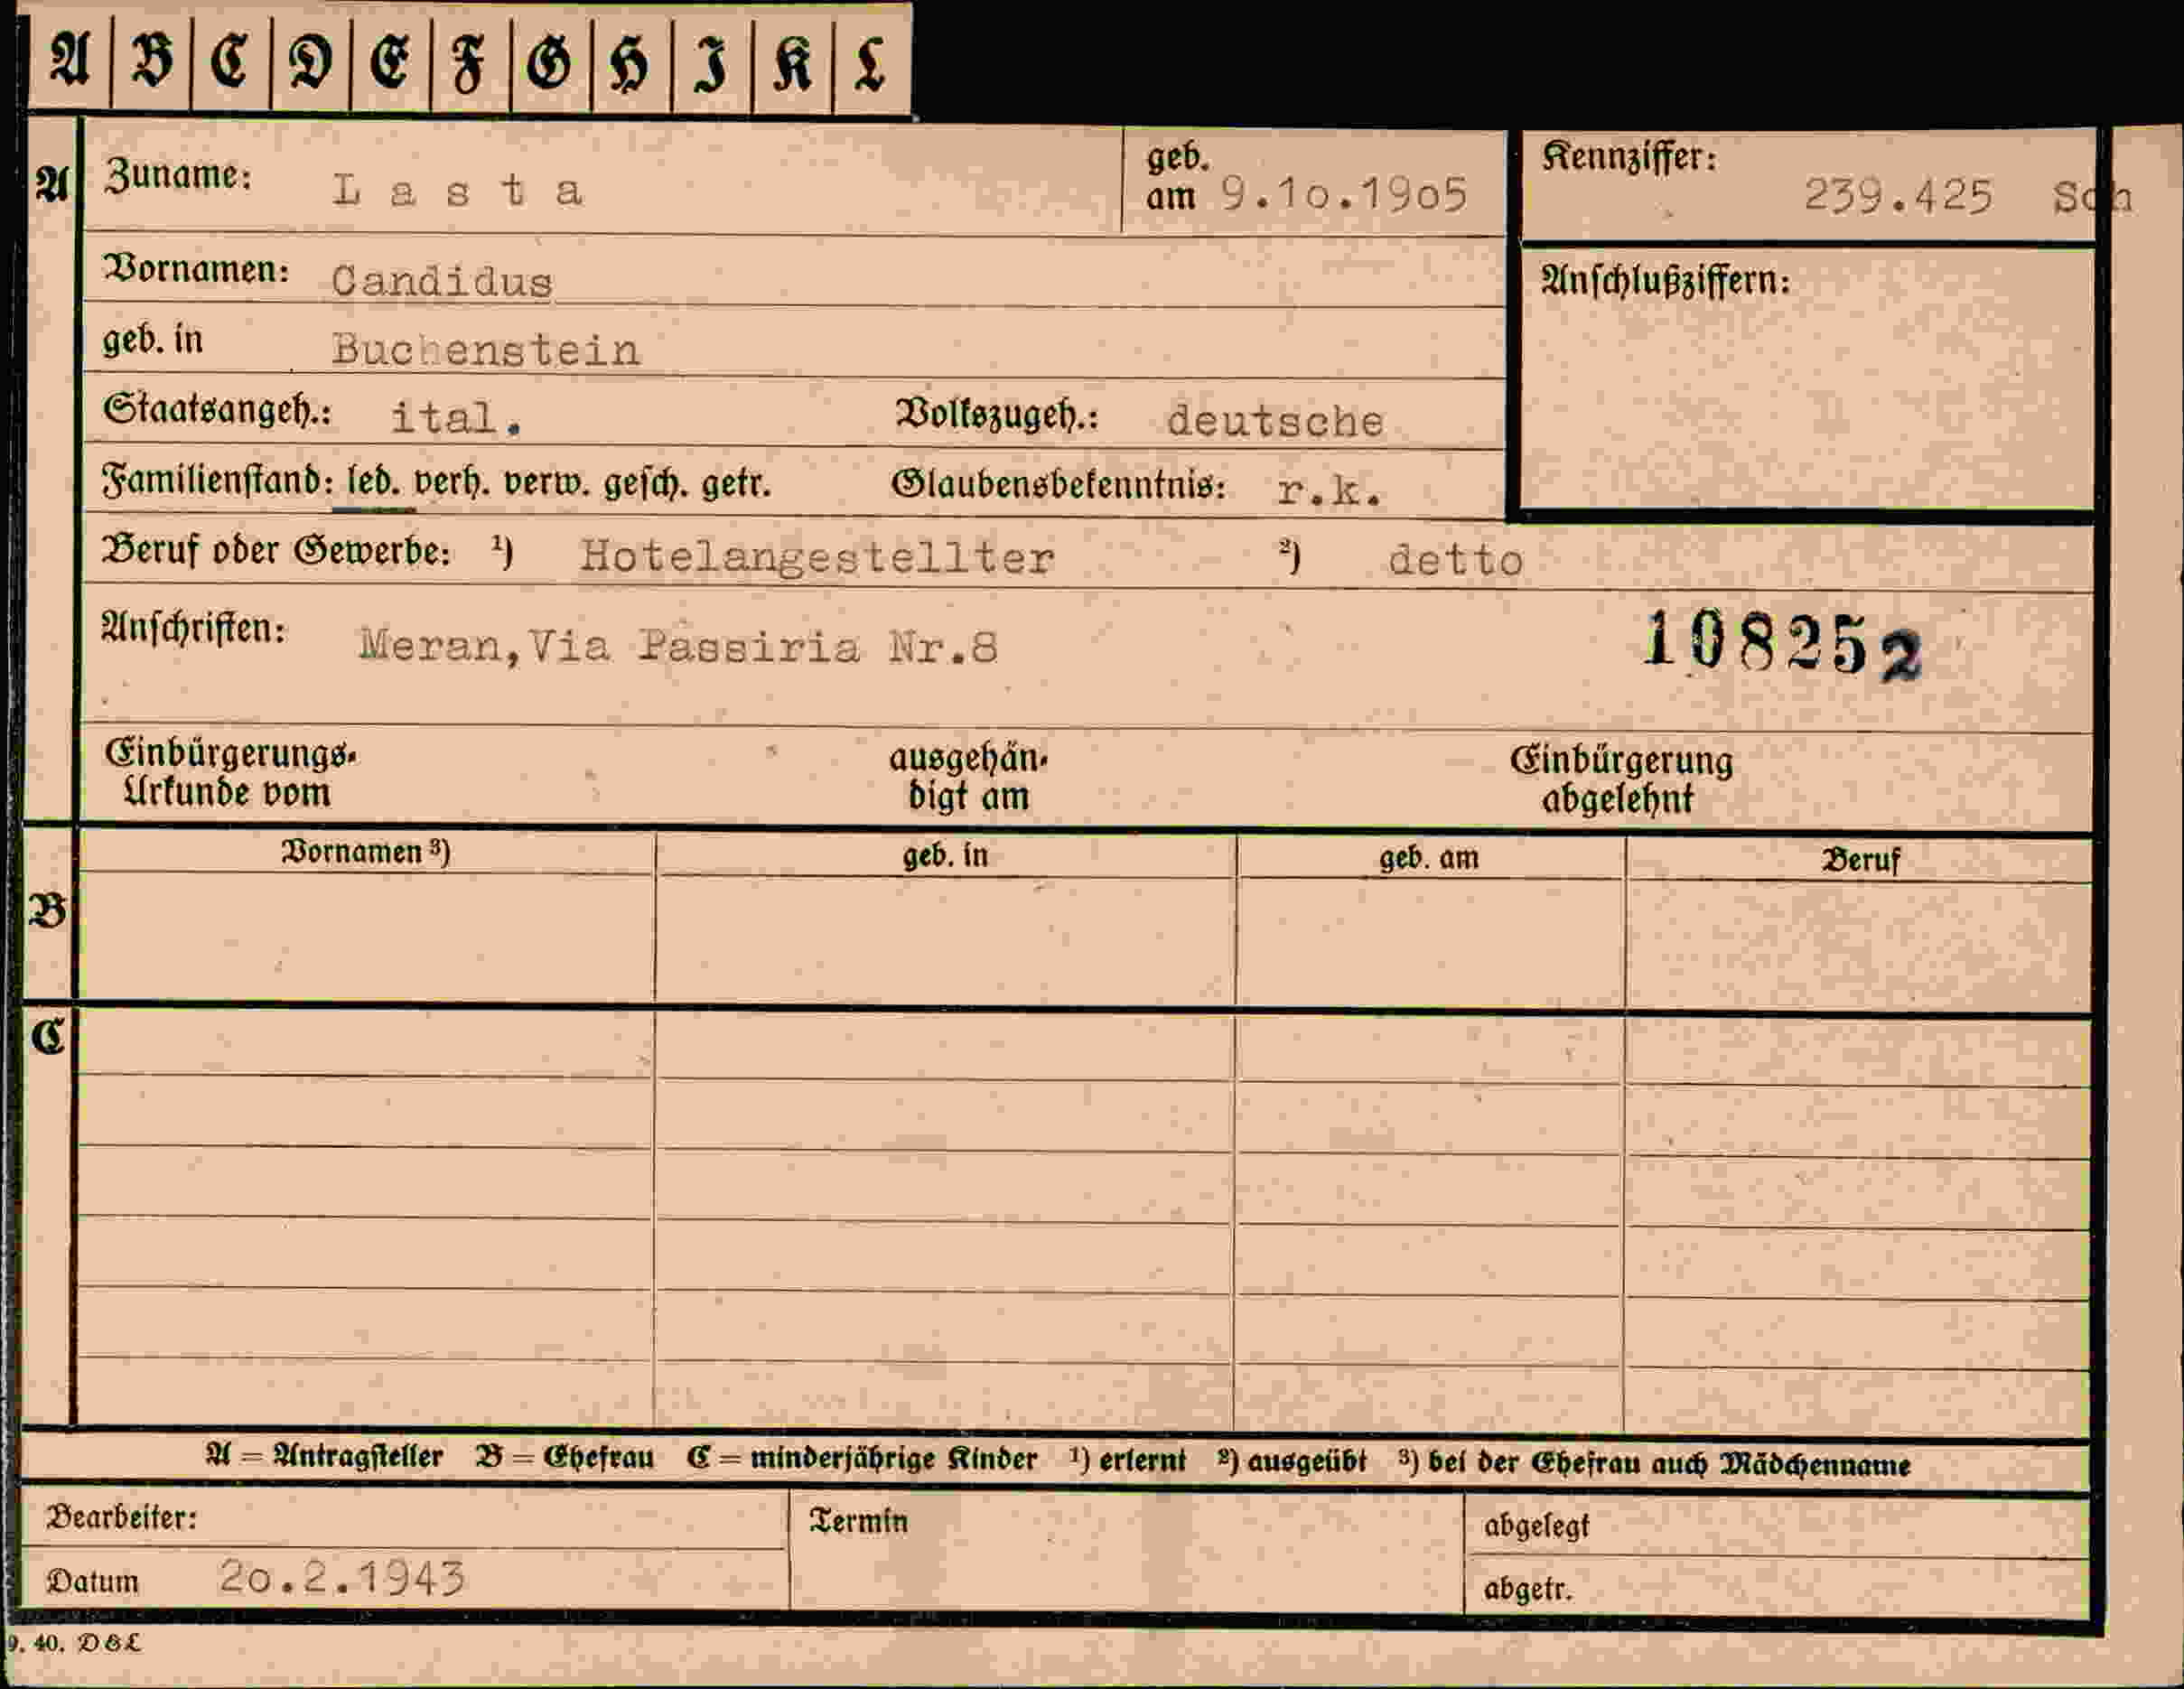 A B C D E F G H I K L
A Zuname: Lasta geb. am 9.10.1905 Kennziffer: 239.425 Sch
Vornamen: Candidus Anschlußziffern:
geb. in Buchenstein
Staatsangeh.: ital. Volkszugeh.: deutsche
Familienstand: led. verh. verw. gesch. getr. Glaubensbekenntnis: r.k.
Beruf oder Gewerbe: ¹) Hotelangestellter ²) detto
Anschriften: Meran,Via Passiria Nr.8 108252
Einbürgerungs- ausgehän- Einbürgerung
Urkunde vom digt am abgelehnt
Vornamen ³) geb. in geb. am Beruf
B
C
A = Antragsteller B = Ehefrau C = minderjährige Kinder ¹) erlernt ²) ausgeübt ³) bei der Ehefrau auch Mädchenname
Bearbeiter: Termin abgelegt
Datum 20.2.1943 abgetr.
9. 40. D&L